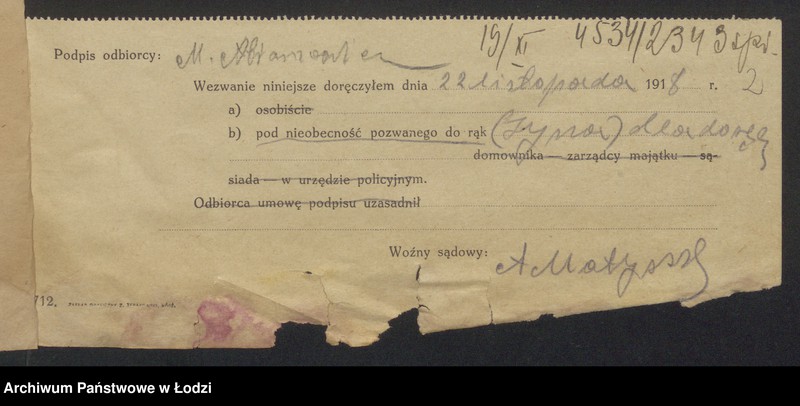 19/XI 4534/234 3 spr.
Podpis odbiorcy: M.
2
Wezwanie niniejsze doręczyłem dnia 22 listopada 1918 r.
a) osobiście
b) pod nieobecność pozwanego do rąk
domownika — zarządcy majątku — są-
siada — w urzędzie policyjnym.
Odbiorca umowę podpisu uzasadnił
Woźny sądowy:
712.
Archiwum Państwowe w Łodzi